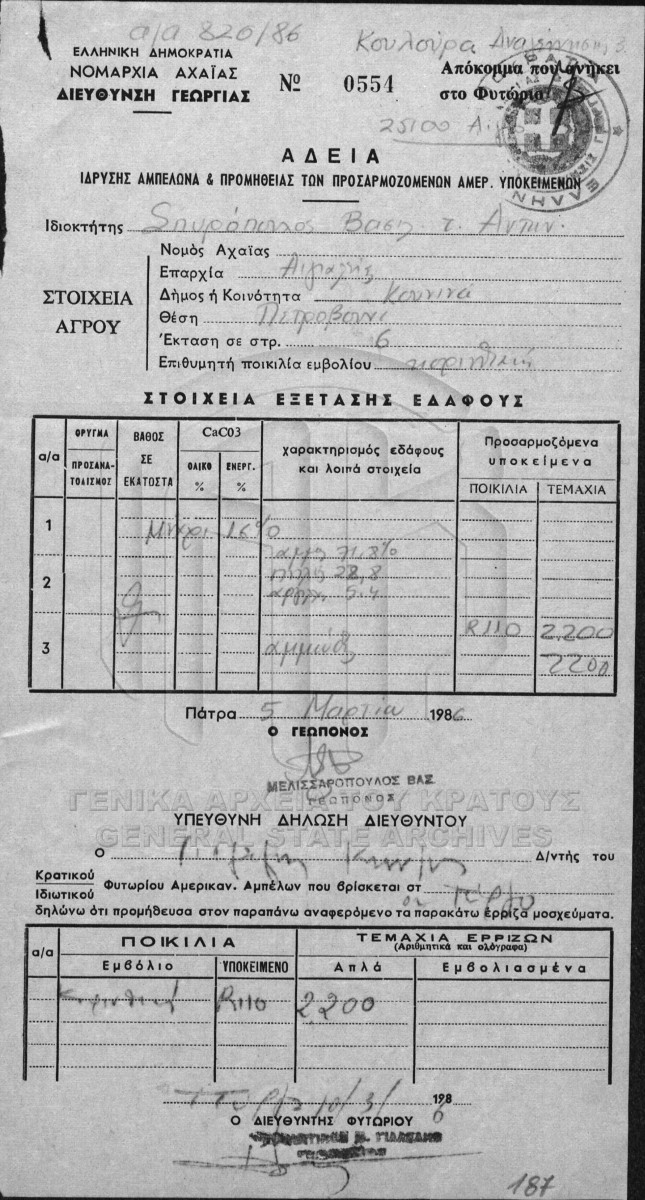 α/α 820/86
Κουλούρα
ΕΛΛΗΝΙΚΗ ΔΗΜΟΚΡΑΤΙΑ
ΝΟΜΑΡΧΙΑ ΑΧΑΪΑΣ
ΔΙΕΥΘΥΝΣΗ ΓΕΩΡΓΙΑΣ
Νο 0554
Απόκομμα που ανήκει
στο Φυτώριο
25100
ΑΔΕΙΑ
ΙΔΡΥΣΗΣ ΑΜΠΕΛΩΝΑ & ΠΡΟΜΗΘΕΙΑΣ ΤΩΝ ΠΡΟΣΑΡΜΟΖΟΜΕΝΩΝ ΑΜΕΡ. ΥΠΟΚΕΙΜΕΝΩΝ
Ιδιοκτήτης Σπυρόπουλος Βασ. τ. Αντων.
ΣΤΟΙΧΕΙΑ ΑΓΡΟΥ
Νομός Αχαΐας
Επαρχία Αιγιαλείας
Δήμος ή Κοινότητα Κουνινά
Θέση Πετροβούνι
Έκταση σε στρ. 6
Επιθυμητή ποικιλία εμβολίου κορινθιακή
ΣΤΟΙΧΕΙΑ ΕΞΕΤΑΣΗΣ ΕΔΑΦΟΥΣ
α/α ΟΡΥΓΜΑ ΠΡΟΣΑΝΑΤΟΛΙΣΜΟΣ ΒΑΘΟΣ ΣΕ ΕΚΑΤΟΣΤΑ CaCO3 ΟΛΙΚΟ % ΕΝΕΡΓ. % χαρακτηρισμός εδάφους και λοιπά στοιχεία Προσαρμοζόμενα υποκείμενα ΠΟΙΚΙΛΙΑ ΤΕΜΑΧΙΑ
1
16%
αμμ 71.8%
2
πηλ 22,8
αργιλ. 5.4
R110 2.200
3 αμμώδες
2200
Πάτρα 5 Μαρτίου 1986
Ο ΓΕΩΠΟΝΟΣ
ΜΕΛΙΣΣΑΡΟΠΟΥΛΟΣ ΒΑΣ
ΓΕΩΠΟΝΟΣ
ΓΕΝΙΚΑ ΑΡΧΕΙΑ ΤΟΥ ΚΡΑΤΟΥΣ
GENERAL STATE ARCHIVES
ΥΠΕΥΘΥΝΗ ΔΗΛΩΣΗ ΔΙΕΥΘΥΝΤΟΥ
Ο Δ/ντής του
Κρατικού
Ιδιωτικού Φυτωρίου Αμερικαν. Αμπέλων που βρίσκεται στ
δηλώνω ότι προμήθευσα στον παραπάνω αναφερόμενο τα παρακάτω έρριζα μοσχεύματα.
α/α ΠΟΙΚΙΛΙΑ Εμβόλιο ΥΠΟΚΕΙΜΕΝΟ ΤΕΜΑΧΙΑ ΕΡΡΙΖΩΝ (Αριθμητικά και ολόγραφα) Απλά Εμβολιασμένα
Κορινθιακή R110 2.200
10/3/ 1986
Ο ΔΙΕΥΘΥΝΤΗΣ ΦΥΤΩΡΙΟΥ
187